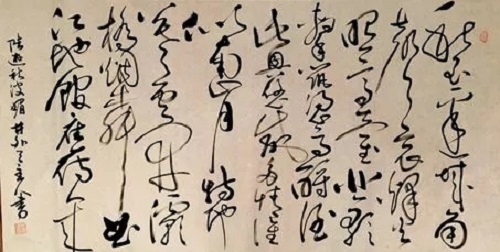 秋到边城角
声哀烽火
照高台悲歌
击筑凭高酹酒
此兴悠哉多情谁
似南山月特地
暮云开灞
桥烟柳曲
江池馆应待人来
陆游秋波媚 书